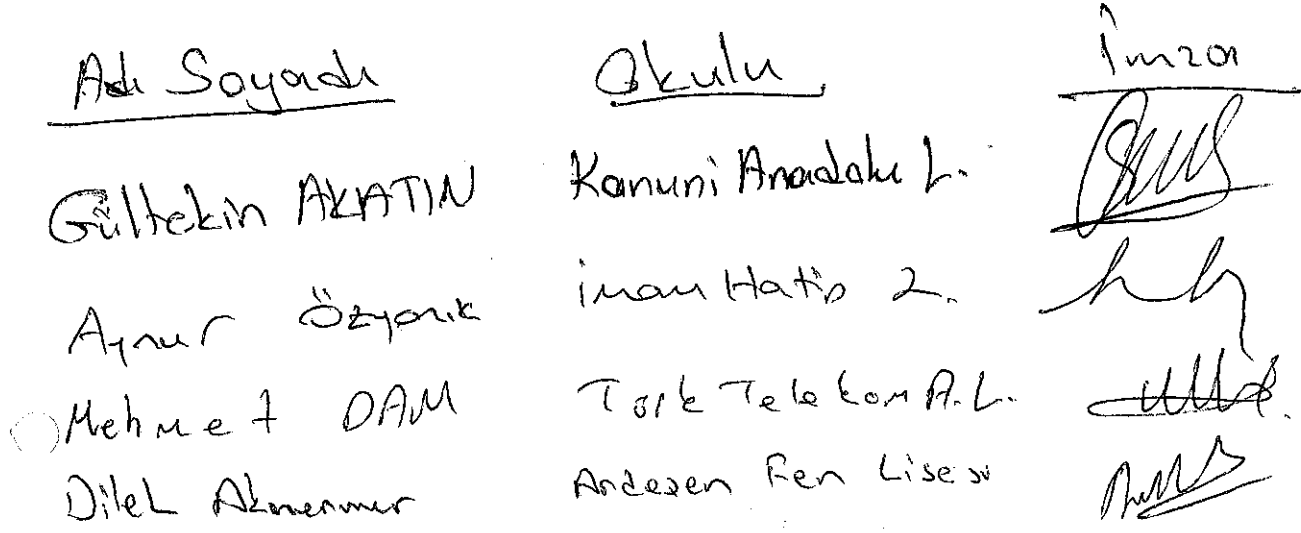 Adı Soyadı Okulu İmza
Gültekin AKATIN Kanuni Anadolu L.
Aynur Özyanık İmam Hatip L.
Mehmet DAM Türk Telekom A.L.
Dilek Akmermer Fen Lisesi